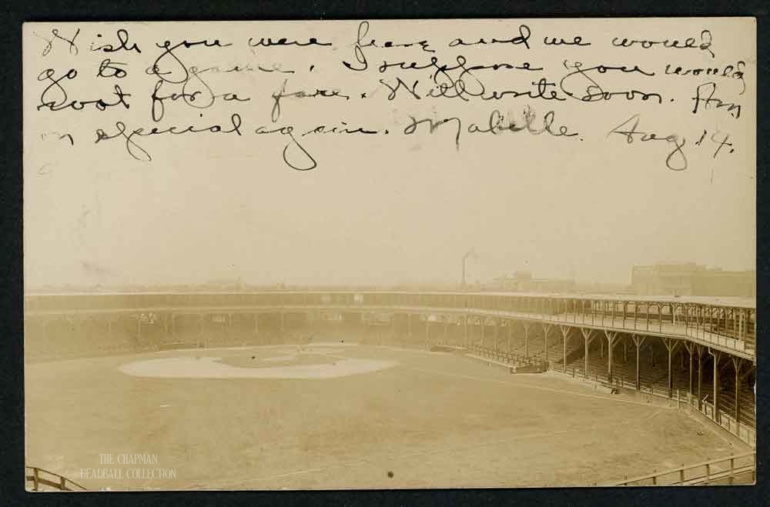 Wish you were here and we would
go to a game. I suppose you would
root for a fare. Will write soon. Am
on special again. Mabelle. Aug 14.
THE CHAPMAN
DEADBALL COLLECTION